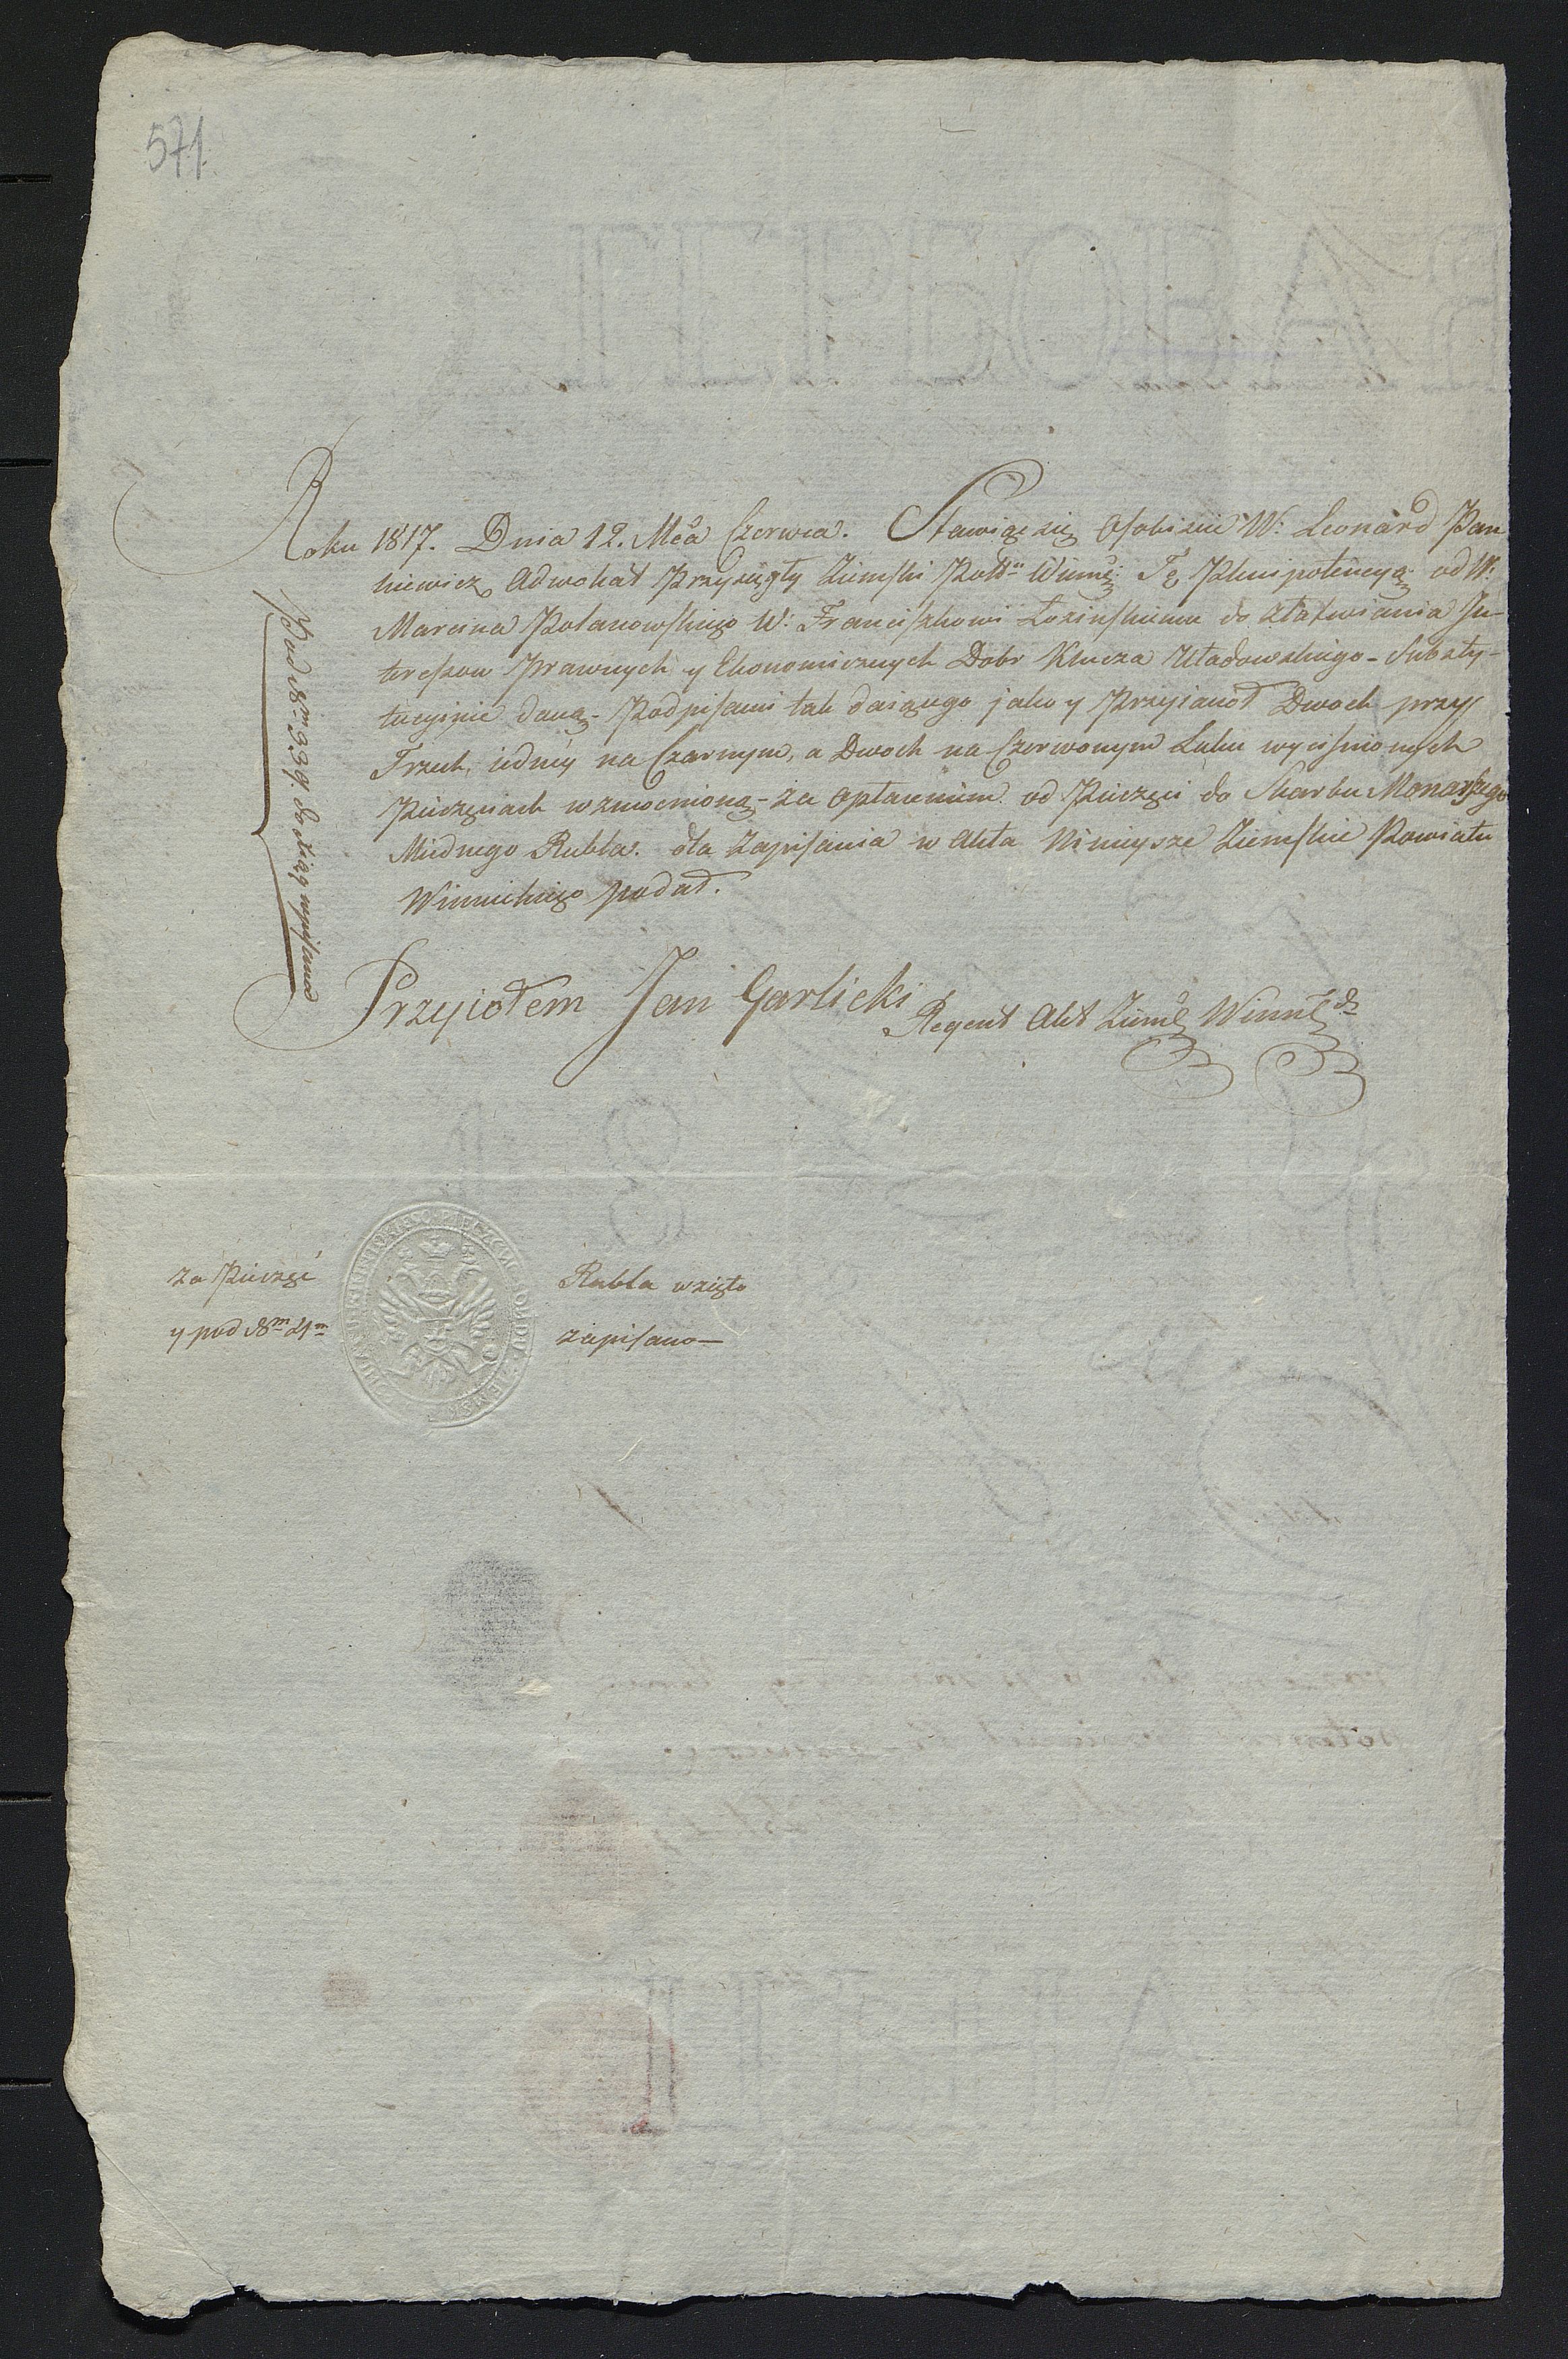 571.
Roku 1817. Dnia 12. Mca Czerwca. Stawiąc się Osobiscie W: Leonard Pan
kiewicz Adwokat Przysięgły Ziemski Pottu Winnej: Tę Plenipotencyą od W:
Marcina Polanowskiego W: Franciszkowi Łozinskiemu do załatwiania In-
teressow Prawnych y Ekonomicznych Dobr Klucza Uładowskiego - Substy-
tucyinie daną - Podpisami tak daiącego jako y Przyiacioł Dwoch przy
Trzech, iedney na Czarnym, a Dwoch na Czerwonym Laku wycisnionych
Pieczęciach wzmocnioną - za opłaceniem od Pieczęci do Skarbu Monarszego
Miednego Rubla. dla Zapisania w Akta Ninieysze Ziemskie Powiatu
Winnickiego podał.
Pod Nrm 339. do ksiąg wpisano
Przyiołem Jan Garlicki Regent Akt Ziem: Winn:
za Pieczęć Rubla wzięto
y pod Nrm 21m zapisano —